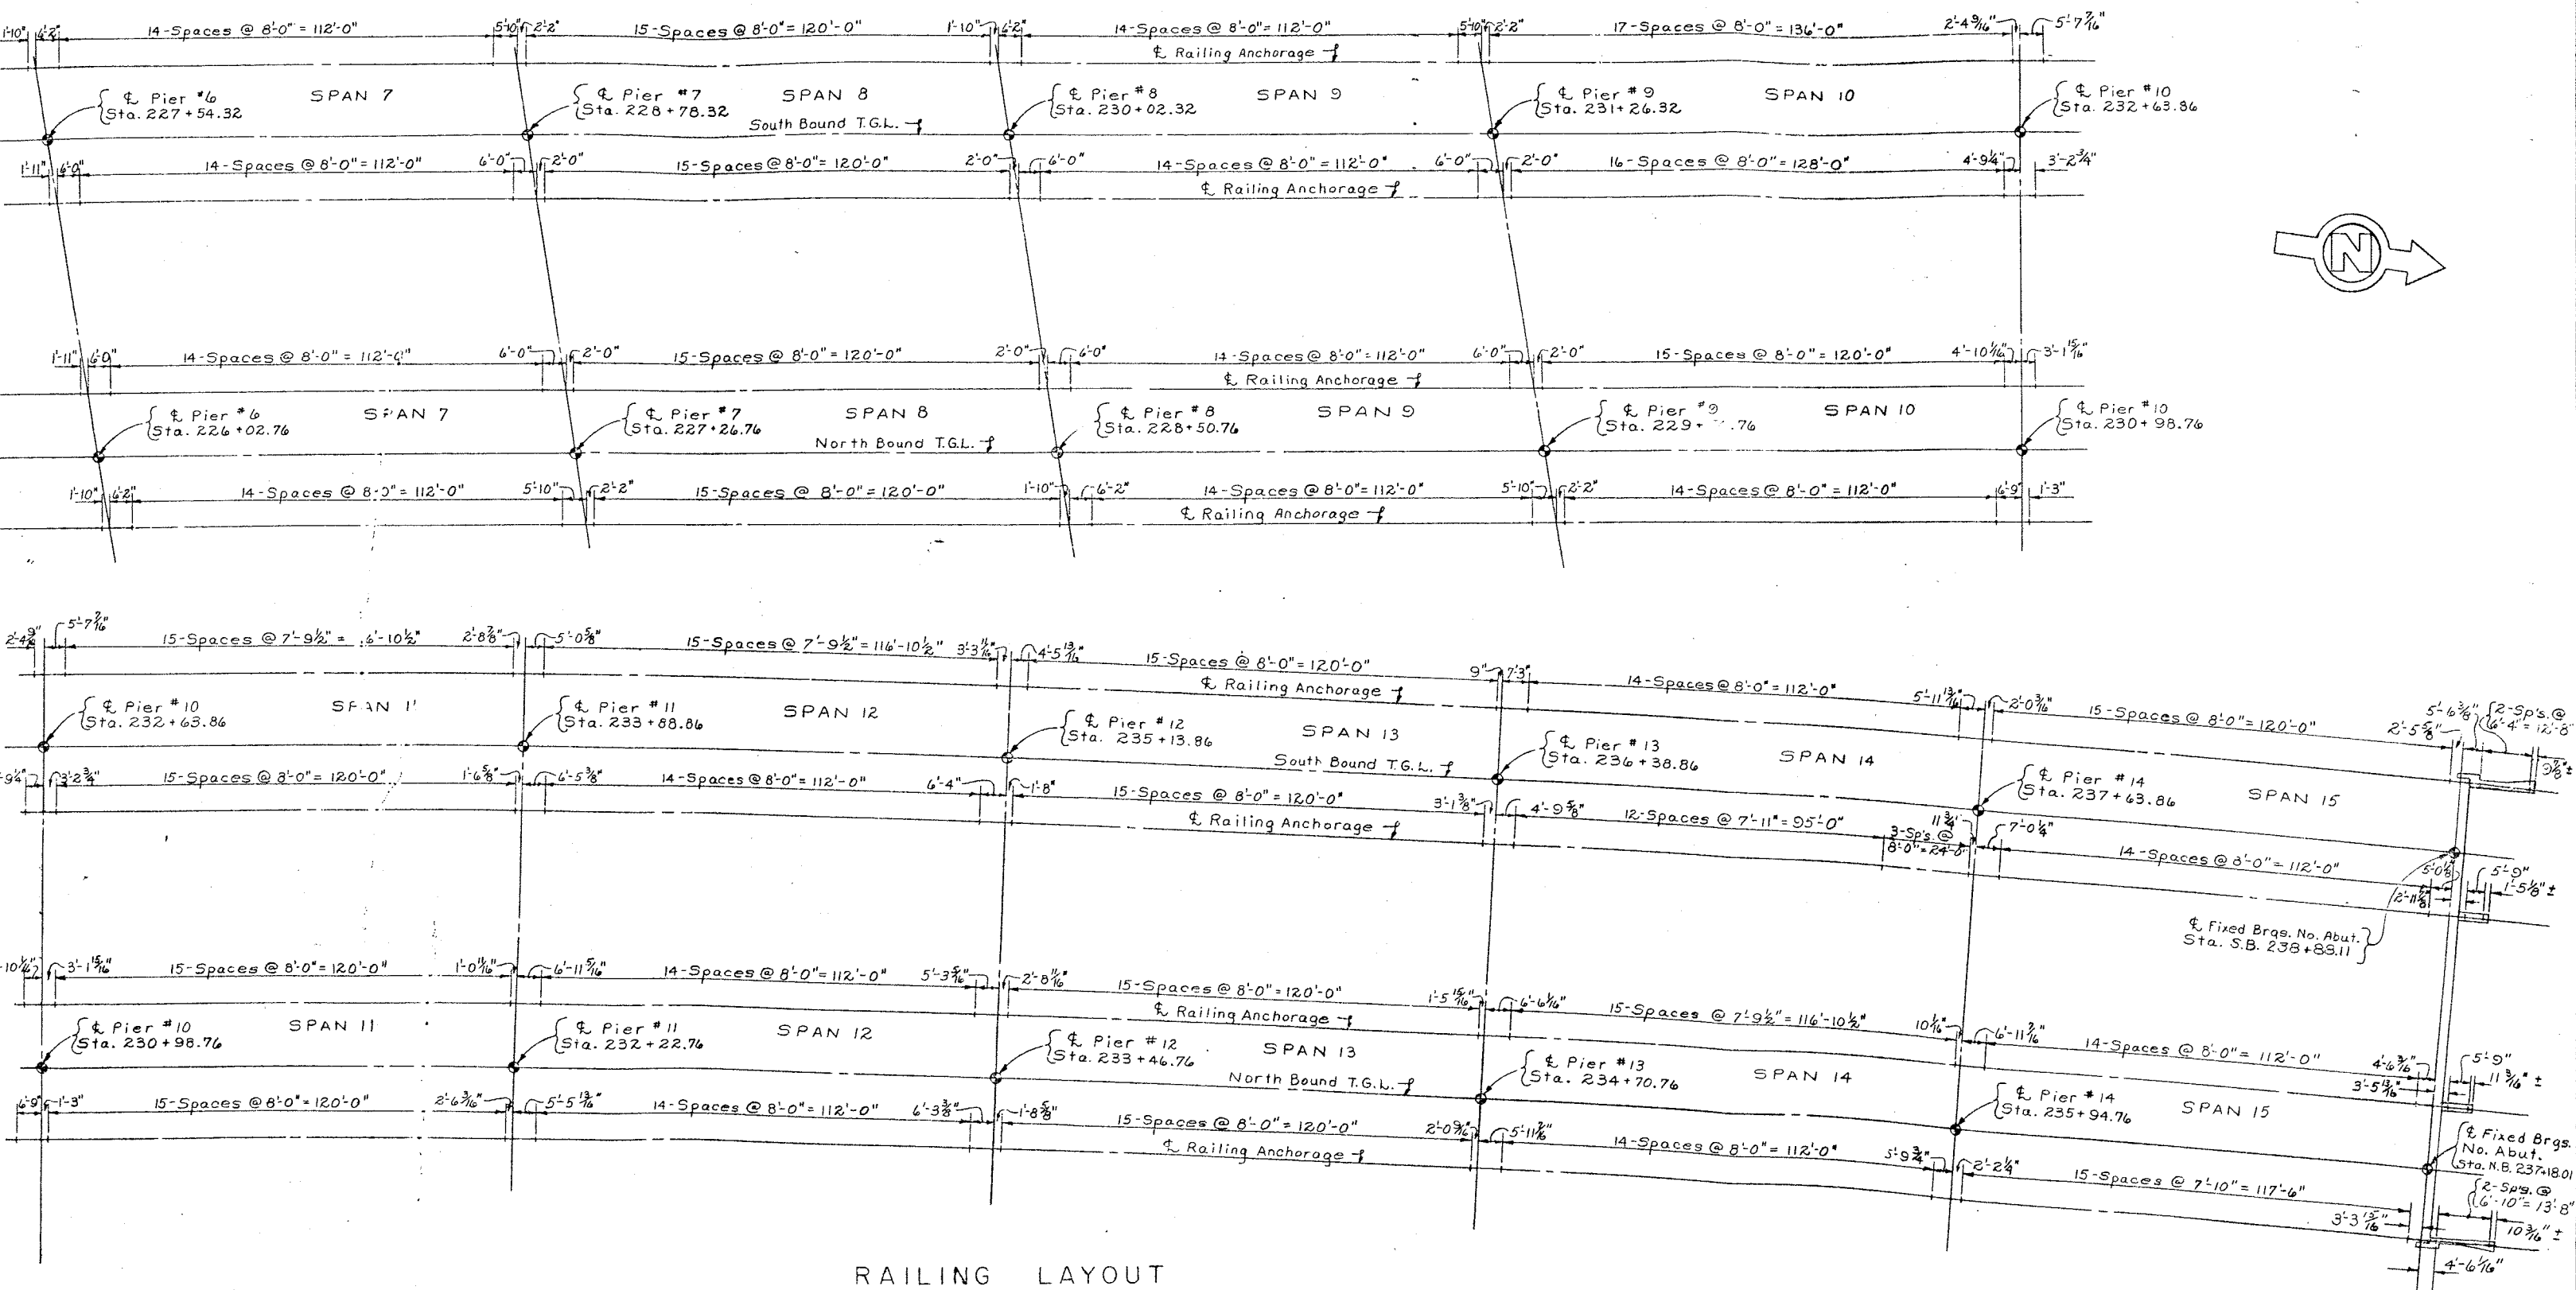 1'-10" 6'-2" 14-Spaces @ 8'-0" = 112'-0" 5'-10" 2'-2" 15-Spaces @ 8'-0" = 120'-0" 1'-10" 6'-2" 14-Spaces @ 8'-0" = 112'-0" 5'-10" 2'-2" 17-Spaces @ 8'-0" = 136'-0" 2'-4 9/16" 5'-7 7/16"
℄ Railing Anchorage
℄ Pier #6 SPAN 7 ℄ Pier #7 SPAN 8 ℄ Pier #8 SPAN 9 ℄ Pier #9 SPAN 10 ℄ Pier #10
Sta. 227+54.32 Sta. 228+78.32 Sta. 230+02.32 Sta. 231+26.32 Sta. 232+63.86
South Bound T.G.L.
1'-11" 6'-0" 14-Spaces @ 8'-0" = 112'-0" 6'-0" 2'-0" 15-Spaces @ 8'-0" = 120'-0" 2'-0" 6'-0" 14-Spaces @ 8'-0" = 112'-0" 6'-0" 2'-0" 16-Spaces @ 8'-0" = 128'-0" 4'-9 1/4" 3'-2 3/4"
℄ Railing Anchorage
N
1'-11" 6'-0" 14-Spaces @ 8'-0" = 112'-0" 6'-0" 2'-0" 15-Spaces @ 8'-0" = 120'-0" 2'-0" 6'-0" 14-Spaces @ 8'-0" = 112'-0" 6'-0" 2'-0" 15-Spaces @ 8'-0" = 120'-0" 4'-10 1/16" 3'-1 15/16"
℄ Railing Anchorage
℄ Pier #6 SPAN 7 ℄ Pier #7 SPAN 8 ℄ Pier #8 SPAN 9 ℄ Pier #9 SPAN 10 ℄ Pier #10
Sta. 226+02.76 Sta. 227+26.76 Sta. 228+50.76 Sta. 229+ .76 Sta. 230+98.76
North Bound T.G.L.
1'-10" 6'-2" 14-Spaces @ 8'-0" = 112'-0" 5'-10" 2'-2" 15-Spaces @ 8'-0" = 120'-0" 1'-10" 6'-2" 14-Spaces @ 8'-0" = 112'-0" 5'-10" 2'-2" 14-Spaces @ 8'-0" = 112'-0" 6'-9" 1'-3"
℄ Railing Anchorage
2'-4 9/16" 5'-7 7/16" 15-Spaces @ 7'-9 1/2" = 6'-10 1/2" 2'-8 7/8" 5'-0 5/8" 15-Spaces @ 7'-9 1/2" = 116'-10 1/2" 3'-3 11/16" 4'-5 13/16" 15-Spaces @ 8'-0" = 120'-0" 9" 7'-3" 14-Spaces @ 8'-0" = 112'-0" 5'-11 13/16" 2'-0 3/16" 15-Spaces @ 8'-0" = 120'-0" 2'-5 5/8" 5'-6 3/8" 2-Sp's. @
6'-4" = 12'-8"
9 7/8" ±
℄ Railing Anchorage
℄ Pier #10 SPAN 11 ℄ Pier #11 SPAN 12 ℄ Pier #12 SPAN 13 ℄ Pier #13 SPAN 14 ℄ Pier #14 SPAN 15
Sta. 232+63.86 Sta. 233+88.86 Sta. 235+13.86 Sta. 236+38.86 Sta. 237+63.86
South Bound T.G.L.
9 1/4" 3'-2 3/4" 15-Spaces @ 8'-0" = 120'-0" 1'-6 5/8" 6'-5 3/8" 14-Spaces @ 8'-0" = 112'-0" 6'-4" 1'-8" 15-Spaces @ 8'-0" = 120'-0" 3'-1 3/8" 4'-9 5/8" 12-Spaces @ 7'-11" = 95'-0" 3-Sp's. @
8'-0" = 24'-0" 11 3/4" 7'-0 1/4" 14-Spaces @ 8'-0" = 112'-0" 5'-0 1/8" 2'-11 7/8" 5'-9" 1'-5 1/8" ±
℄ Railing Anchorage
℄ Fixed Brgs. No. Abut.
Sta. S.B. 238+88.11
10 1/16" 3'-1 15/16" 15-Spaces @ 8'-0" = 120'-0" 1'-0 11/16" 6'-11 5/16" 14-Spaces @ 8'-0" = 112'-0" 5'-3 5/16" 2'-8 11/16" 15-Spaces @ 8'-0" = 120'-0" 1'-5 15/16" 6'-6 1/16" 15-Spaces @ 7'-9 1/2" = 116'-10 1/2" 10 1/16" 6'-11 7/16" 14-Spaces @ 8'-0" = 112'-0" 4'-6 3/16" 3'-5 13/16" 5'-9" 11 3/16" ±
℄ Railing Anchorage
℄ Pier #10 SPAN 11 ℄ Pier #11 SPAN 12 ℄ Pier #12 SPAN 13 ℄ Pier #13 SPAN 14 ℄ Pier #14 SPAN 15
Sta. 230+98.76 Sta. 232+22.76 Sta. 233+46.76 Sta. 234+70.76 Sta. 235+94.76
North Bound T.G.L.
℄ Fixed Brgs.
No. Abut.
Sta. N.B. 237+18.01
6'-9" 1'-3" 15-Spaces @ 8'-0" = 120'-0" 2'-6 3/16" 5'-5 13/16" 14-Spaces @ 8'-0" = 112'-0" 6'-3 3/8" 1'-8 5/8" 15-Spaces @ 8'-0" = 120'-0" 2'-0 9/16" 5'-11 7/16" 14-Spaces @ 8'-0" = 112'-0" 5'-9 3/4" 2'-2 1/4" 15-Spaces @ 7'-10" = 117'-6" 3'-3 15/16" 2-Sp's. @
6'-10" = 13'-8"
10 3/16" ±
4'-6 1/16"
℄ Railing Anchorage
RAILING LAYOUT